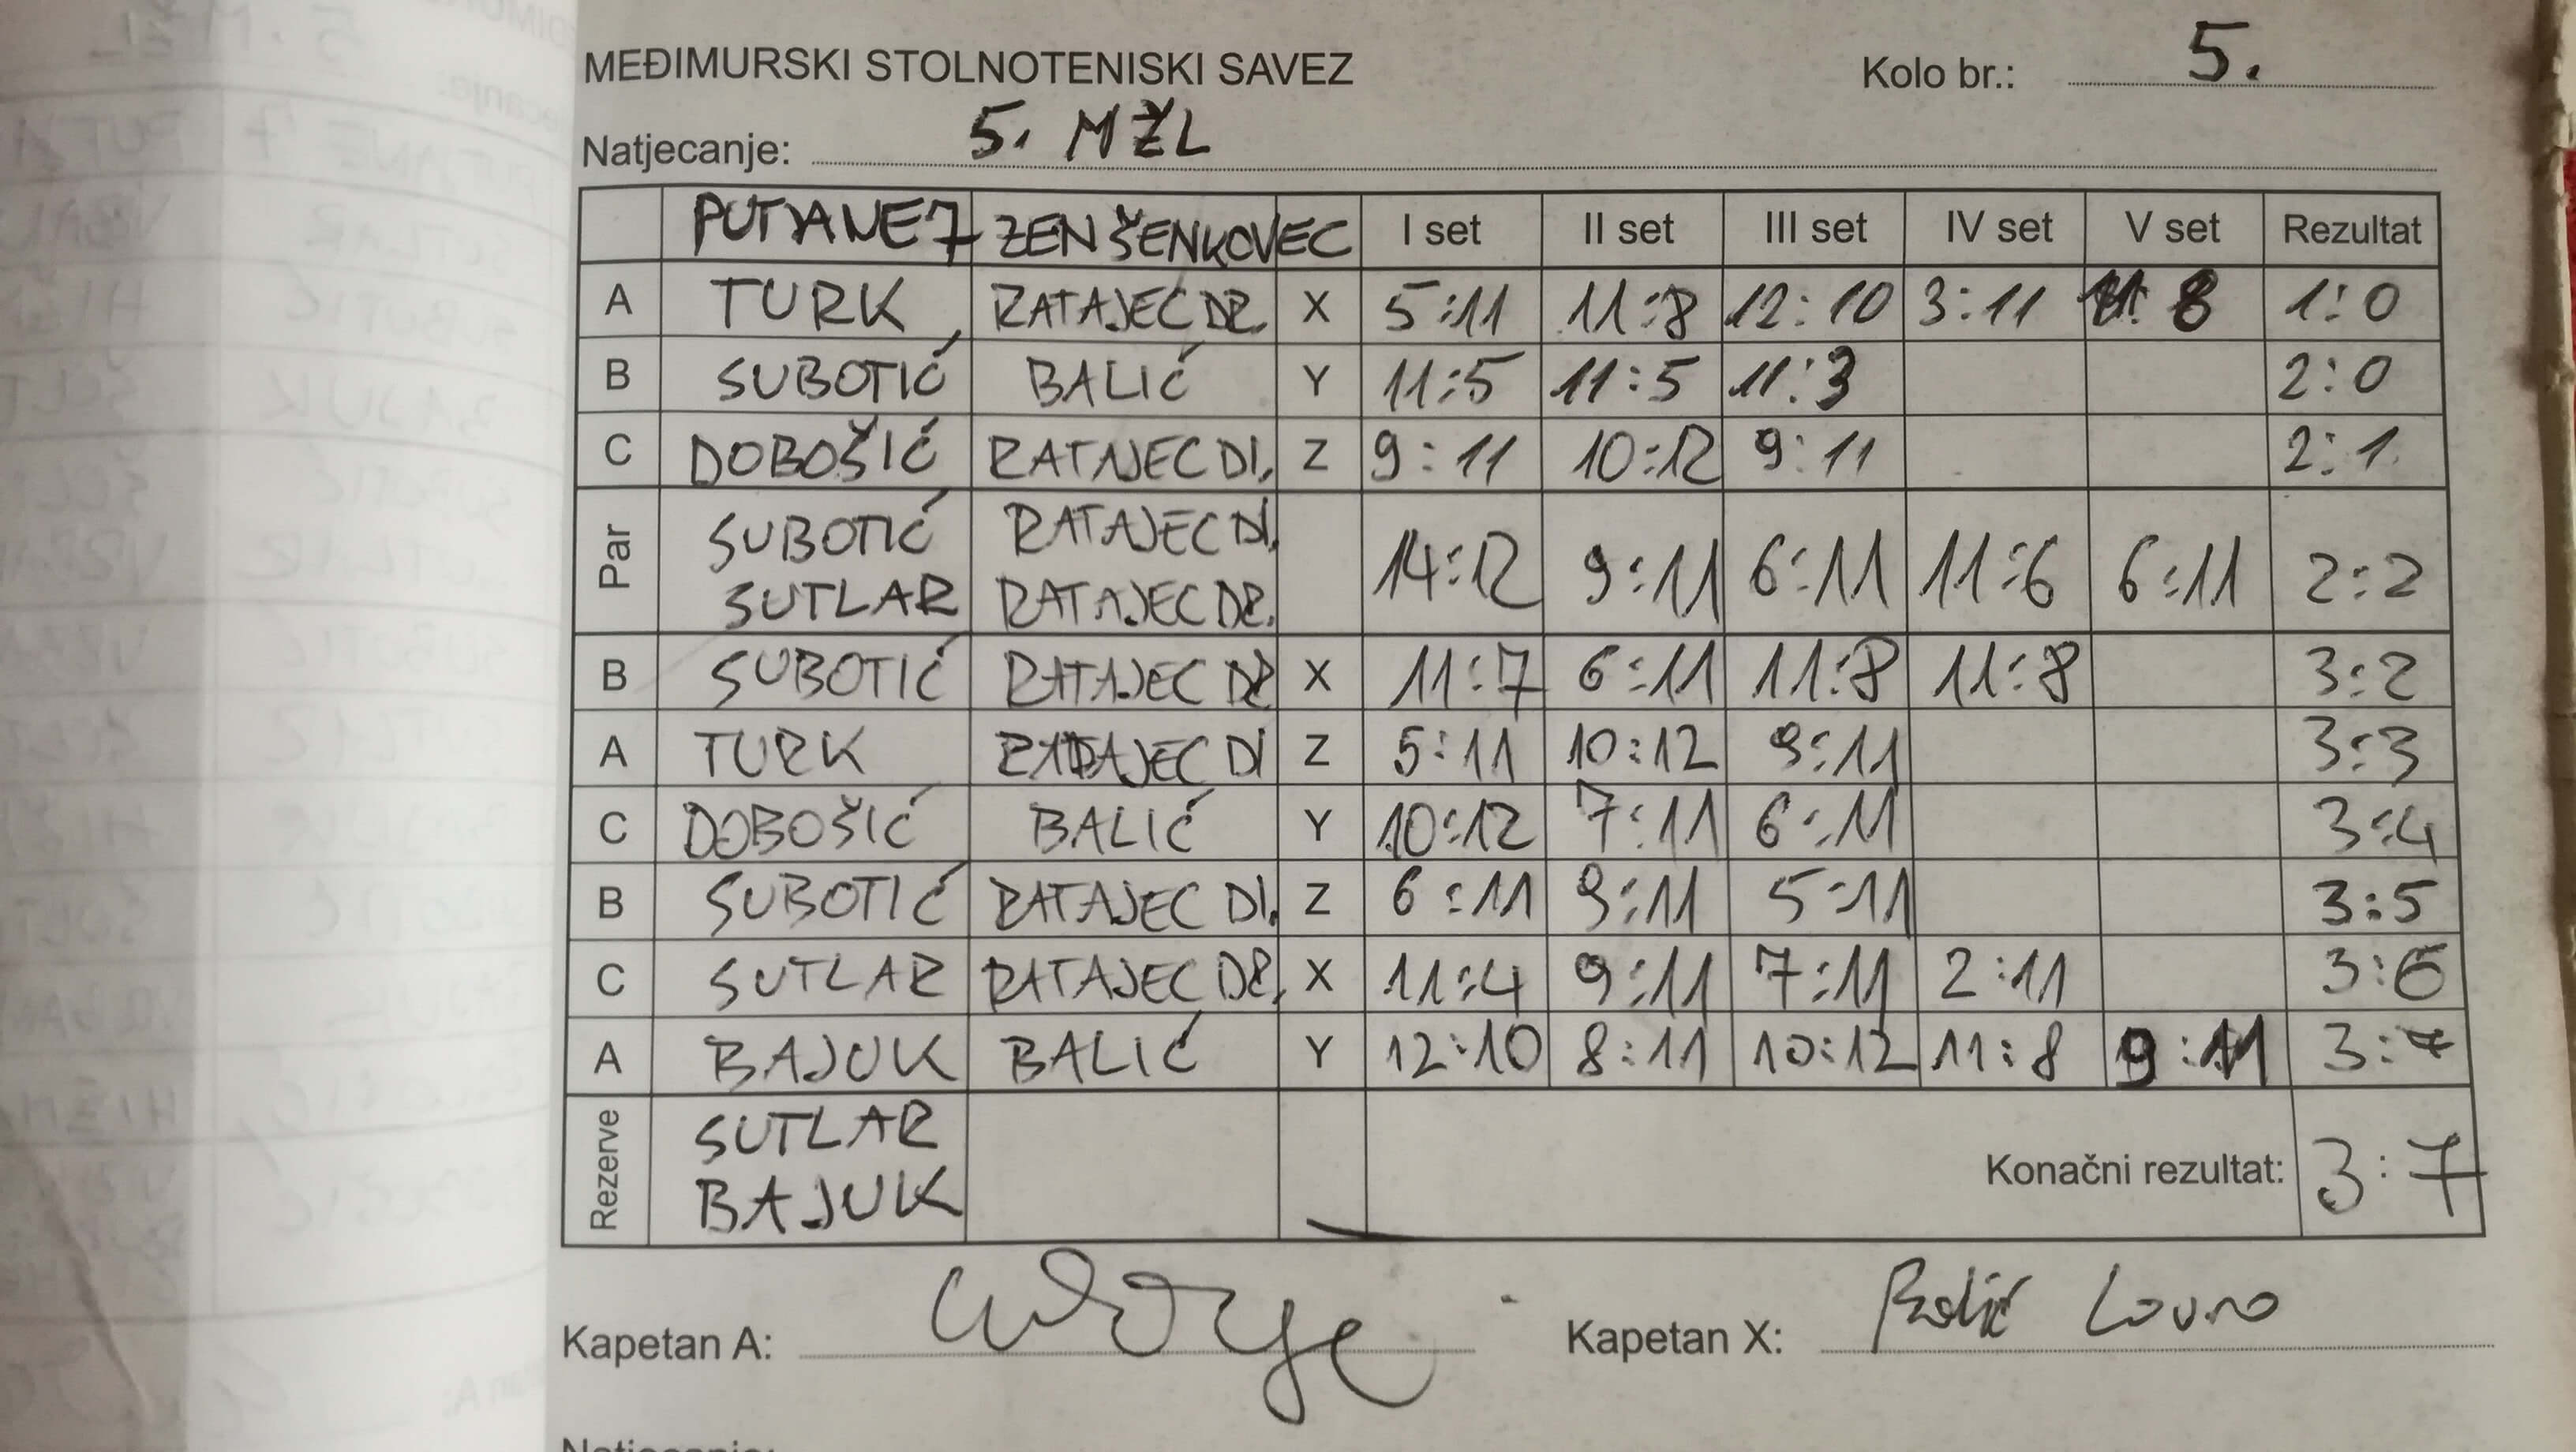 MEĐIMURSKI STOLNOTENISKI SAVEZ Kolo br.: 5.
Natjecanje: 5. MŽL
PUTJANE 7 ZEN ŠENKOVEC I set II set III set IV set V set Rezultat
A TURK RATAJEC DR. X 5:11 11:8 12:10 3:11 11:8 1:0
B SUBOTIĆ BALIĆ Y 11:5 11:5 11:3 2:0
C DOBOŠIĆ RATAJEC DI. Z 9:11 10:12 9:11 2:1
Par SUBOTIĆ RATAJEC DI. 14:12 9:11 6:11 11:6 6:11 2:2
SUTLAR RATAJEC DR.
B SUBOTIĆ RATAJEC DR X 11:7 6:11 11:8 11:8 3:2
A TURK RATAJEC DI Z 5:11 10:12 9:11 3:3
C DOBOŠIĆ BALIĆ Y 10:12 7:11 6:11 3:4
B SUBOTIĆ RATAJEC DI. Z 6:11 9:11 5:11 3:5
C SUTLAR RATAJEC DR. X 11:4 9:11 7:11 2:11 3:6
A BAJUK BALIĆ Y 12:10 8:11 10:12 11:8 9:11 3:7
Rezerve SUTLAR
BAJUK
Konačni rezultat: 3:7
Kapetan A: Kapetan X: Balić Lovro
Natjecanje: